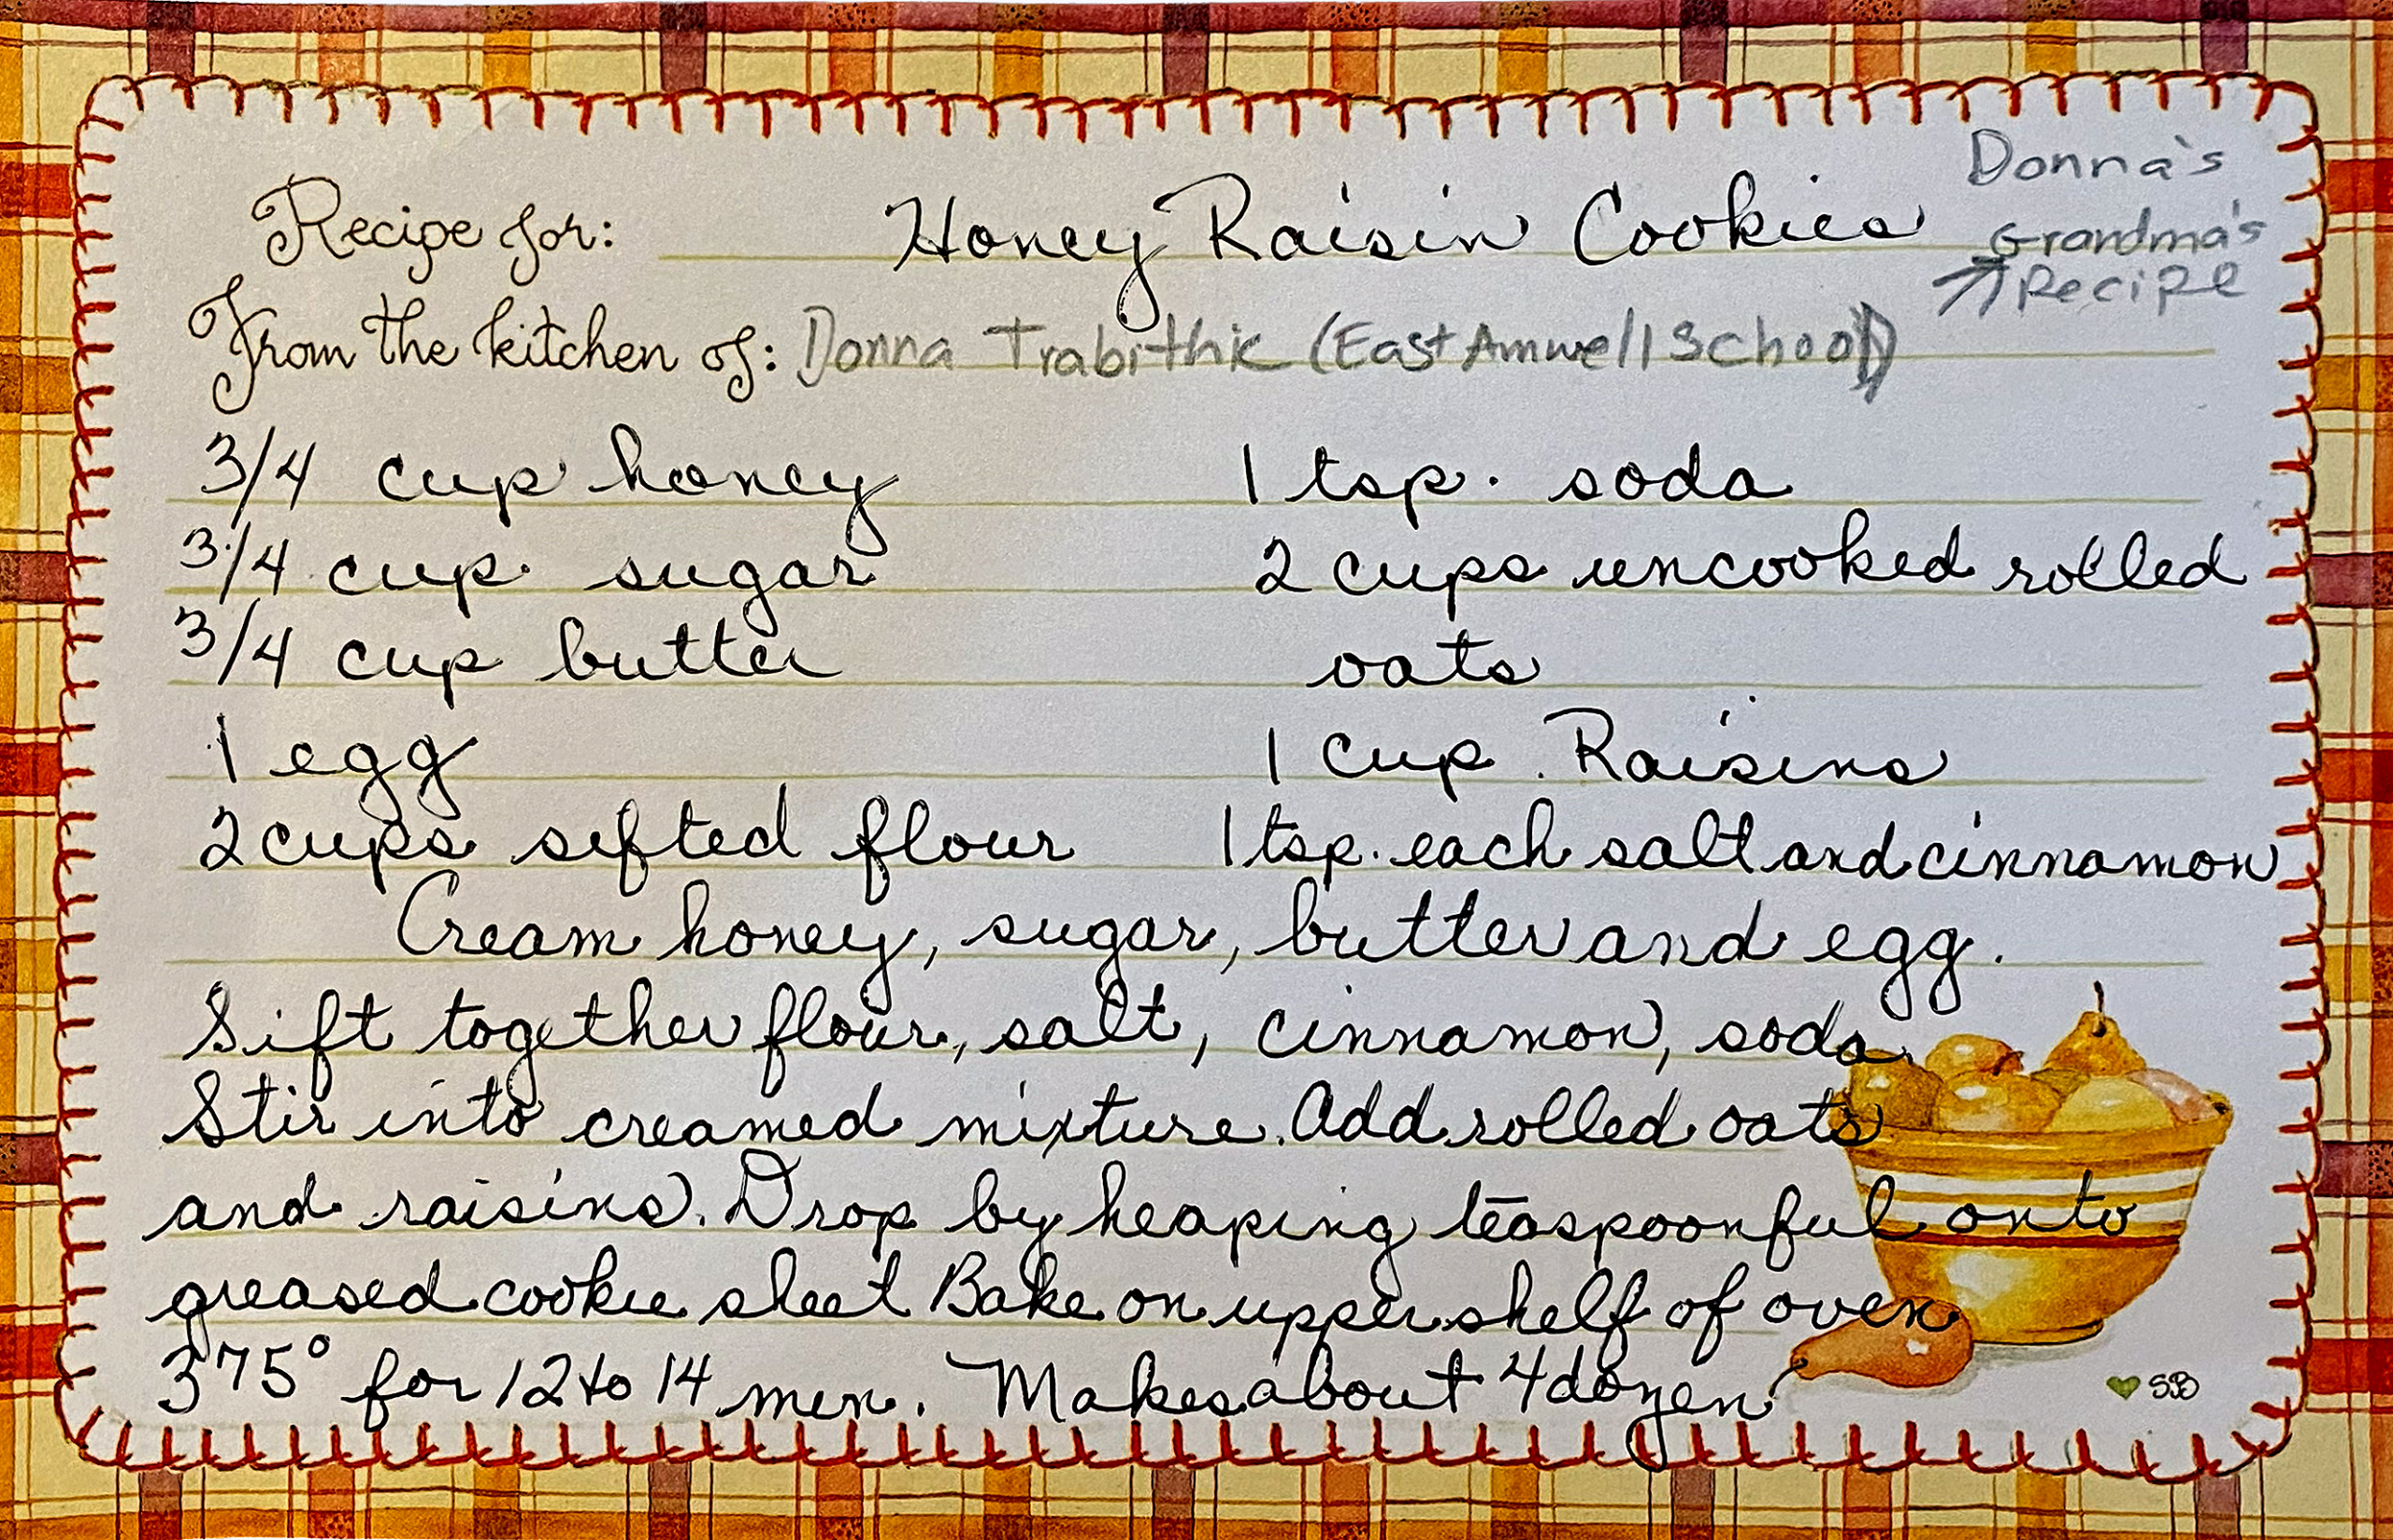 Donna's
Recipe for: Honey Raisin Cookies
Grandma's
Recipe
From the kitchen of: Donna Trabithic (East Amwell School)
3/4 cup honey
3/4 cup sugar
3/4 cup butter
1 egg
2 cups sifted flour
1 tsp. soda
2 cups uncooked rolled
oats
1 cup Raisins
1 tsp. each salt and cinnamon
Cream honey, sugar, butter and egg.
Sift together flour, salt, cinnamon, soda.
Stir into creamed mixture. Add rolled oats
and raisins. Drop by heaping teaspoonful onto
greased cookie sheet Bake on upper shelf of oven
375° for 12 to 14 min. Makes about 4 dozen
SB